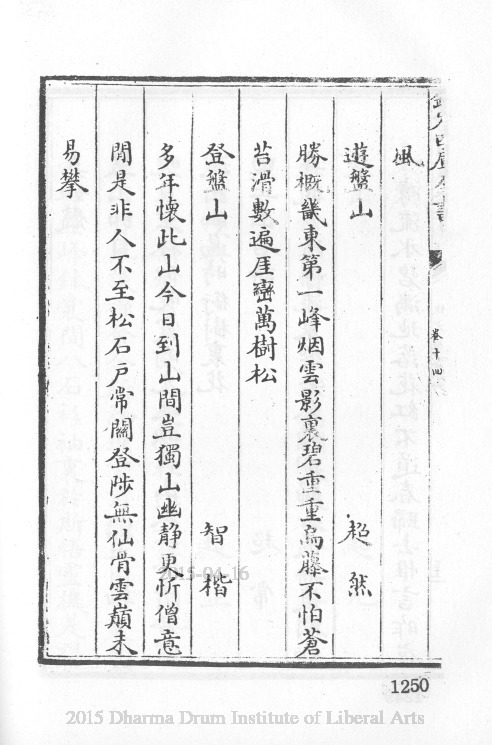 卷十四
風
遊盤山
超然
勝概畿東第一峰烟雲影裏碧重重烏藤不怕蒼
苔滑數遍厓巒萬樹松
登盤山
智楷
多年懷此山今日到山間豈獨山幽静更忻僧意
閒是非人不至松石戶常關登陟無仙骨雲巔未
易攀
2015-04-16
1250
2015 Dharma Drum Institute of Liberal Arts